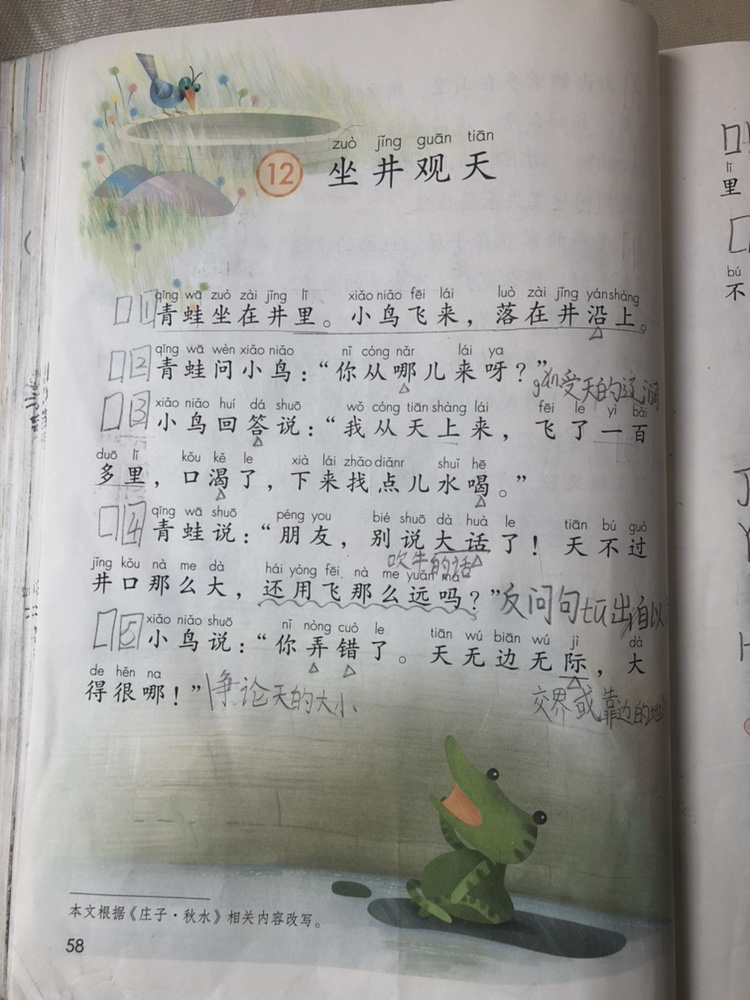 zuò jǐng guān tiān
12 坐井观天
qīng wā zuò zài jǐng lǐ xiǎo niǎo fēi lái luò zài jǐng yán shàng
1 青蛙坐在井里。小鸟飞来，落在井沿上。
qīng wā wèn xiǎo niǎo nǐ cóng nǎr lái ya
2 青蛙问小鸟：“你从哪儿来呀？”
受天的辽阔
xiǎo niǎo huí dá shuō wǒ cóng tiān shàng lái fēi le yì bǎi
3 小鸟回答说：“我从天上来，飞了一百
duō lǐ kǒu kě le xià lái zhǎo diǎnr shuǐ hē
多里，口渴了，下来找点儿水喝。”
qīng wā shuō péng you bié shuō dà huà le tiān bú guò
4 青蛙说：“朋友，别说大话了！天不过
吹牛的话
jǐng kǒu nà me dà hái yòng fēi nà me yuǎn ma
井口那么大，还用飞那么远吗？”反问句tū出自以
xiǎo niǎo shuō nǐ nòng cuò le tiān wú biān wú jì dà
5 小鸟说：“你弄错了。天无边无际，大
de hěn na
得很哪！”争论天的大小
交界或靠边的地
本文根据《庄子·秋水》相关内容改写。
58
lǐ
里
bú
不